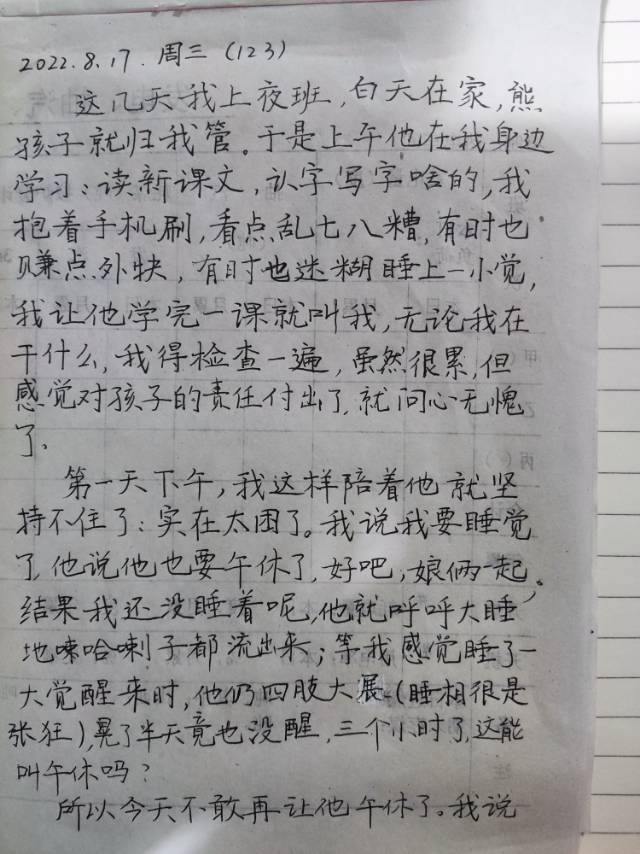 2022.8.17.周三(123)
这几天我上夜班,白天在家,熊
孩子就归我管。于是上午他在我身边
学习:读新课文,认字写字啥的,我
抱着手机刷,看点乱七八糟,有时也
赚点外快,有时也迷糊睡上一小觉,
我让他学完一课就叫我,无论我在
干什么,我得检查一遍,虽然很累,但
感觉对孩子的责任付出了,就问心无愧
了。
第一天下午,我这样陪着他就坚
持不住了:实在太困了。我说我要睡觉
了,他说他也要午休了,好吧,娘俩一起。
结果我还没睡着呢,他就呼呼大睡
地哈喇子都流出来;等我感觉睡了一
大觉醒来时,他仍四肢大展(睡相很是
张狂),晃了半天竟也没醒,三个小时了,这能
叫午休吗?
所以今天不敢再让他午休了。我说